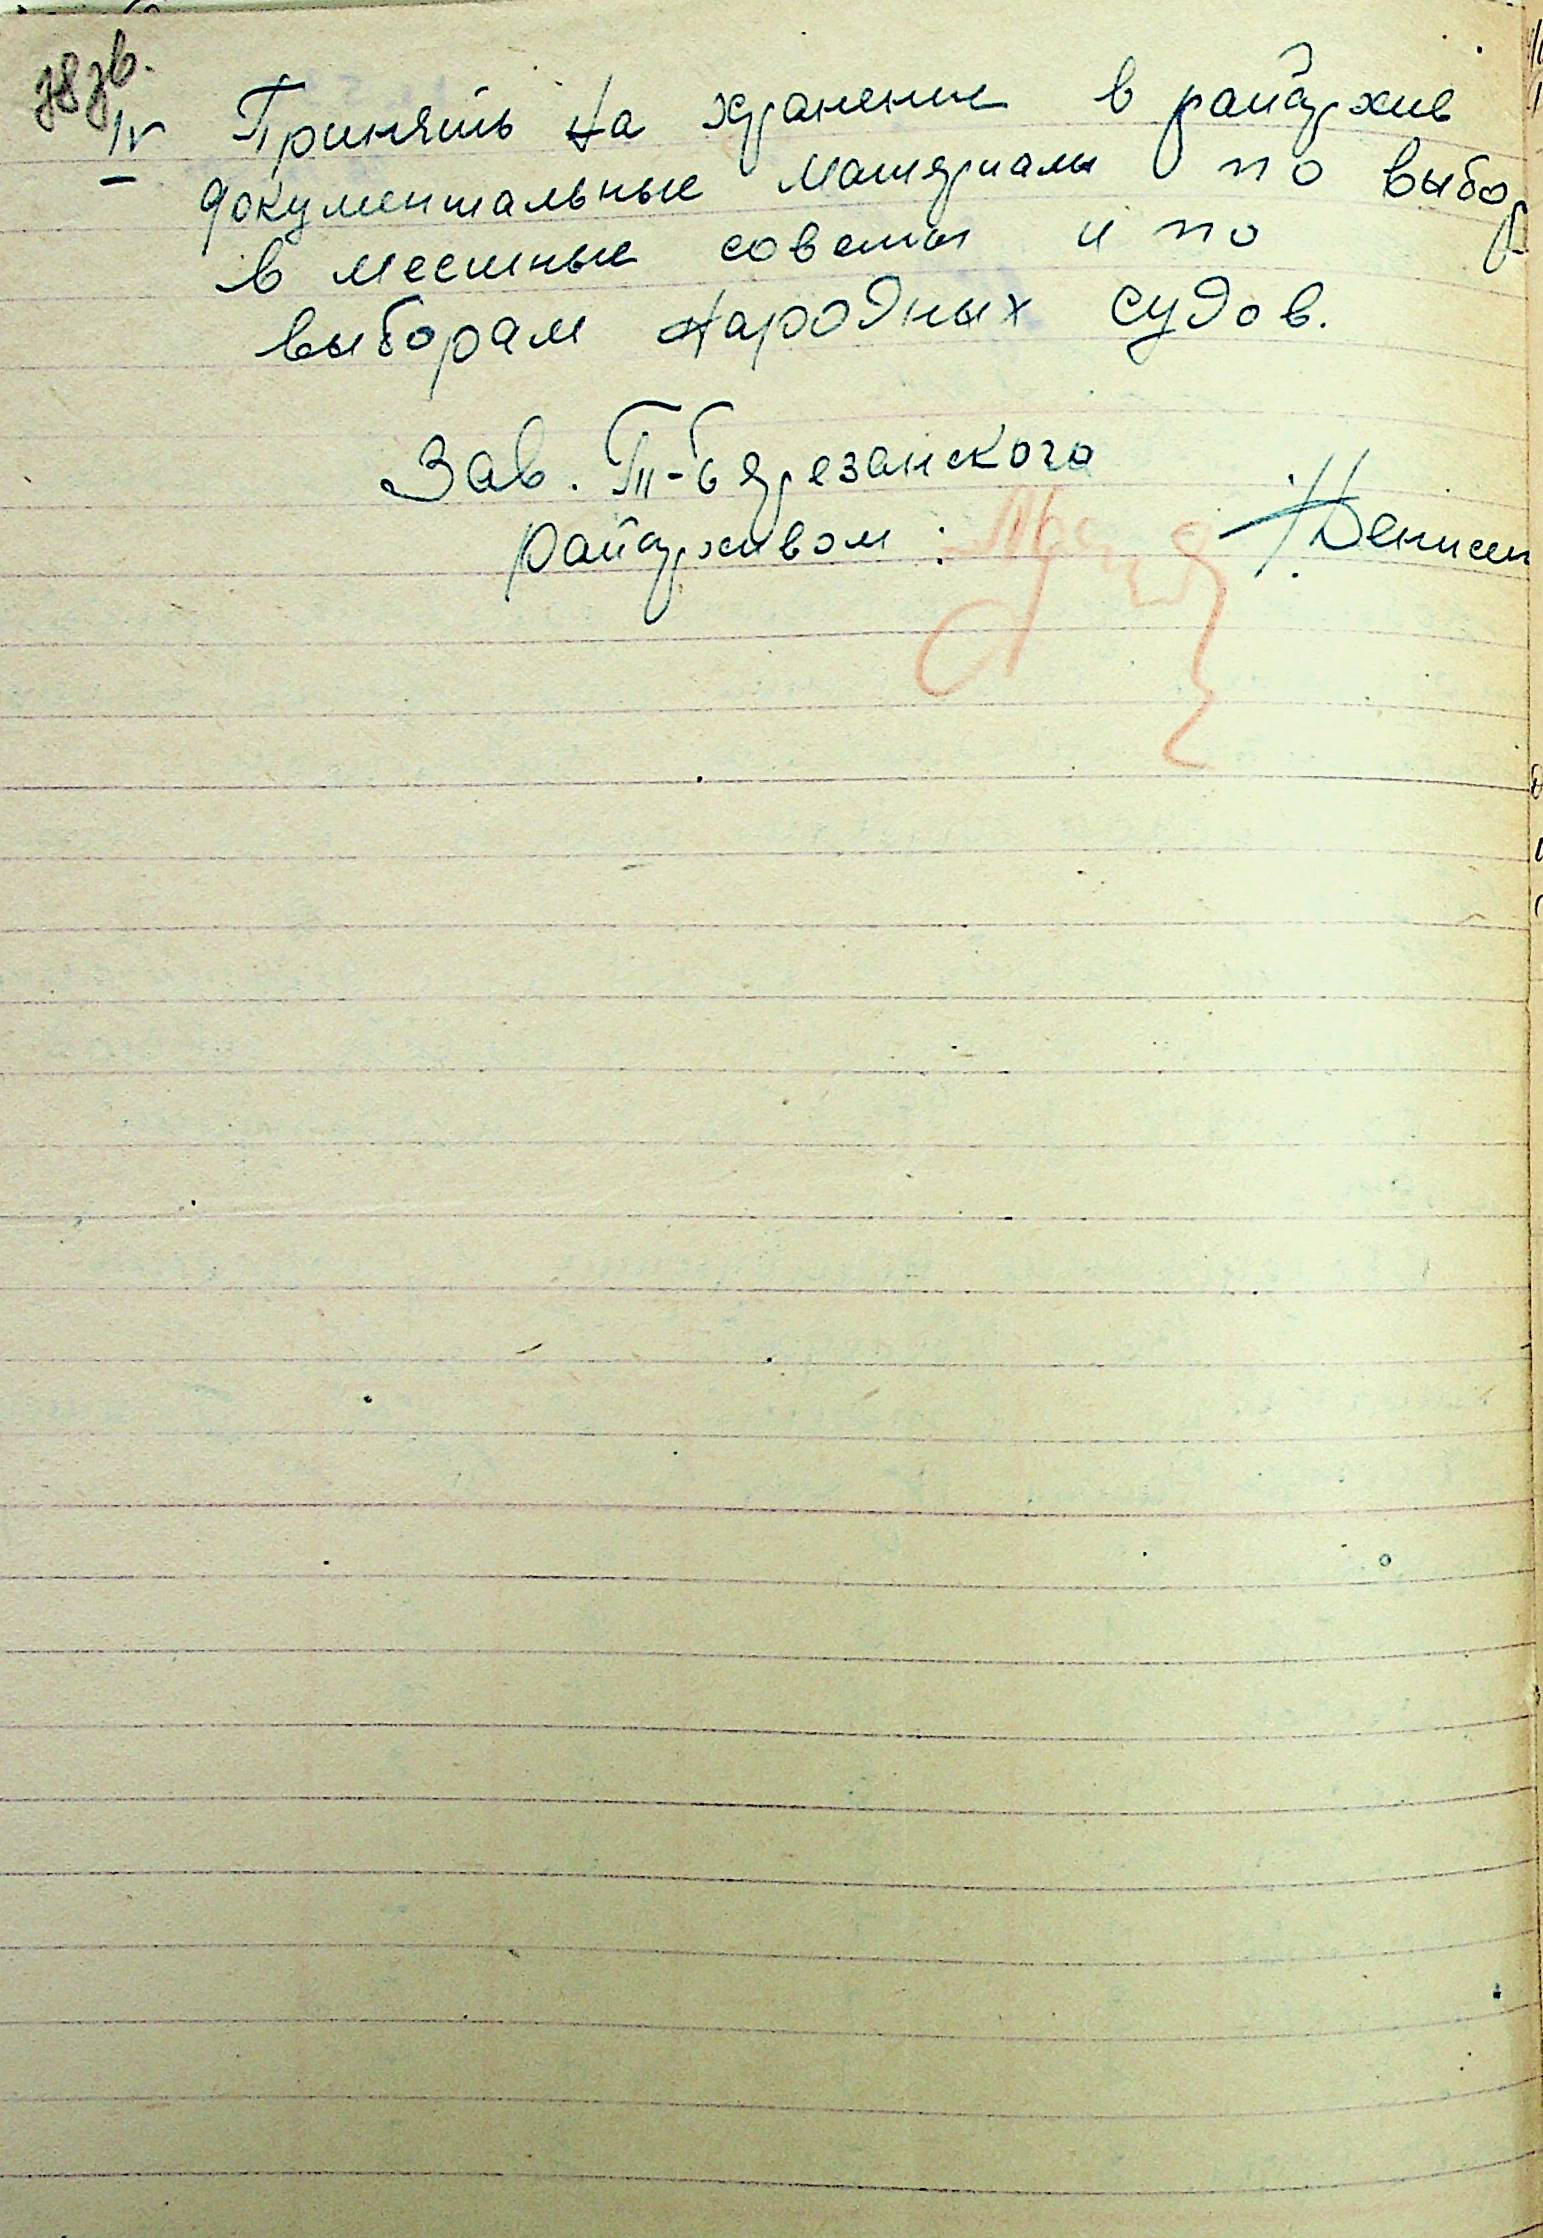 78зв.
IV Принять на хранение в райархив
документальные материалы по выбор
в местные советы и по
выборам народных судов.
Зав. Т-Березанского
райархивом: Денисен